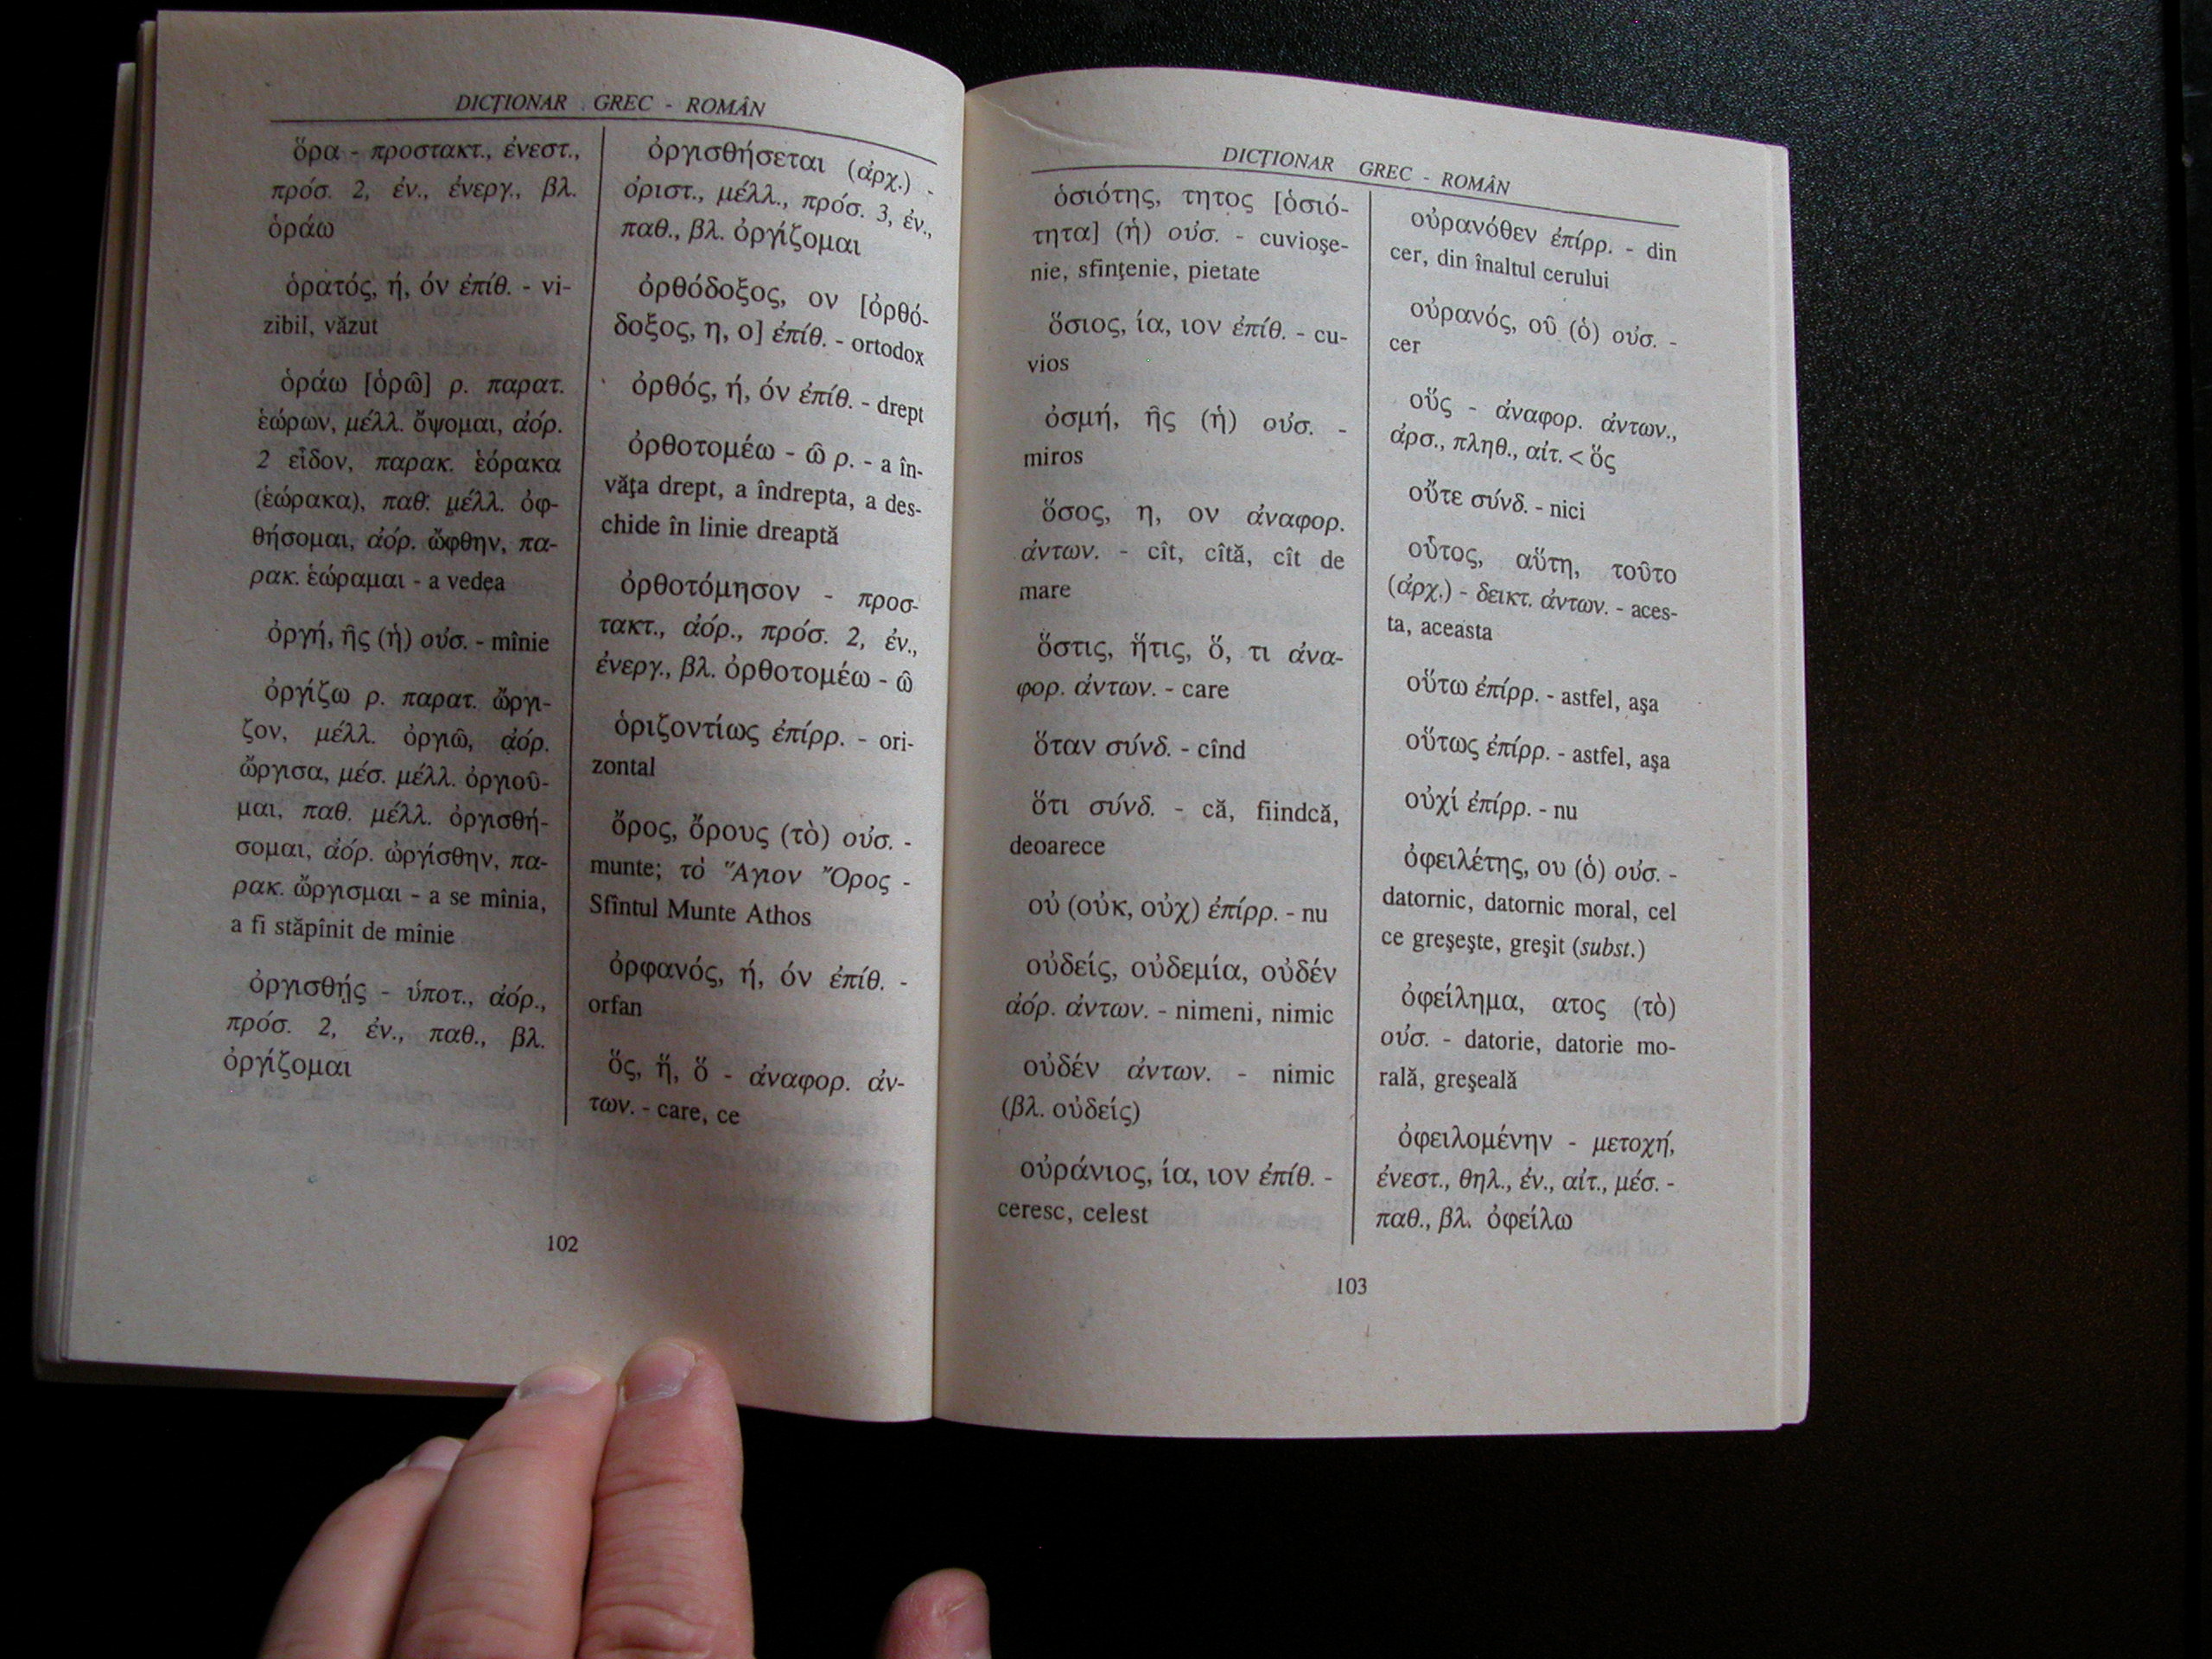 DICŢIONAR GREC - ROMÂN
ὅρα - προστακτ., ἐνεστ.,
πρόσ. 2, ἑν., ἐνεργ., βλ.
ὁράω
ὁρατός, ή, όν ἐπίθ. - vi-
zibil, văzut
ὁράω [ὁρῶ] ρ. παρατ.
ἑώρων, μέλλ. ὄψομαι, ἀόρ.
2 εἶδον, παρακ. ἑόρακα
(ἑώρακα), παθ. μέλλ. ὀφ-
θήσομαι, ἀόρ. ὤφθην, πα-
ρακ. ἑώραμαι - a vedea
ὀργή, ῆς (ἡ) οὐσ. - mînie
ὀργίζω ρ. παρατ. ὤργι-
ζον, μέλλ. ὀργιῶ, ἀόρ.
ὤργισα, μέσ. μέλλ. ὀργιοῦ-
μαι, παθ. μέλλ. ὀργισθή-
σομαι, ἀόρ. ὠργίσθην, πα-
ρακ. ὤργισμαι - a se mînia,
a fi stăpînit de mînie
ὀργισθῇς - ὑποτ., ἀόρ.,
πρόσ. 2, ἑν., παθ., βλ.
ὀργίζομαι
ὀργισθήσεται (ἀρχ.) -
ὁριστ., μέλλ., πρόσ. 3, ἑν.,
παθ., βλ. ὀργίζομαι
ὀρθόδοξος, ον [ὀρθό-
δοξος, η, ο] ἐπίθ. - ortodox
ὀρθός, ή, όν ἐπίθ. - drept
ὀρθοτομέω - ῶ ρ. - a în-
văţa drept, a îndrepta, a des-
chide în linie dreaptă
ὀρθοτόμησον - προσ-
τακτ., ἀόρ., πρόσ. 2, ἑν.,
ἐνεργ., βλ. ὀρθοτομέω - ῶ
ὁριζοντίως ἐπίρρ. - ori-
zontal
ὄρος, ὄρους (τὸ) οὐσ. -
munte; τὸ Ἅγιον Ὄρος -
Sfîntul Munte Athos
ὀρφανός, ή, όν ἐπίθ. -
orfan
ὅς, ἥ, ὅ - ἀναφορ. ἀν-
των. - care, ce
102
DICŢIONAR GREC - ROMÂN
ὁσιότης, τητος [ὁσιό-
τητα] (ἡ) οὐσ. - cuvioşe-
nie, sfinţenie, pietate
ὅσιος, ία, ιον ἐπίθ. - cu-
vios
ὀσμή, ῆς (ἡ) οὐσ. -
miros
ὅσος, η, ον ἀναφορ.
ἀντων. - cît, cîtă, cît de
mare
ὅστις, ἥτις, ὅ, τι ἀνα-
φορ. ἀντων. - care
ὅταν σύνδ. - cînd
ὅτι σύνδ. - că, fiindcă,
deoarece
οὐ (οὐκ, οὐχ) ἐπίρρ. - nu
οὐδείς, οὐδεμία, οὐδέν
ἀόρ. ἀντων. - nimeni, nimic
οὐδέν ἀντων. - nimic
(βλ. οὐδείς)
οὐράνιος, ία, ιον ἐπίθ. -
ceresc, celest
οὐρανόθεν ἐπίρρ. - din
cer, din înaltul cerului
οὐρανός, οῦ (ὁ) οὐσ. -
cer
οὕς - ἀναφορ. ἀντων.,
ἀρσ., πληθ., αἰτ. < ὅς
οὔτε σύνδ. - nici
οὗτος, αὕτη, τοῦτο
(ἀρχ.) - δεικτ. ἀντων. - aces-
ta, aceasta
οὕτω ἐπίρρ. - astfel, aşa
οὕτως ἐπίρρ. - astfel, aşa
οὐχί ἐπίρρ. - nu
ὀφειλέτης, ου (ὁ) οὐσ. -
datornic, datornic moral, cel
ce greşeşte, greşit (subst.)
ὀφείλημα, ατος (τὸ)
οὐσ. - datorie, datorie mo-
rală, greşeală
ὀφειλομένην - μετοχή,
ἐνεστ., θηλ., ἑν., αἰτ., μέσ. -
παθ., βλ. ὀφείλω
103